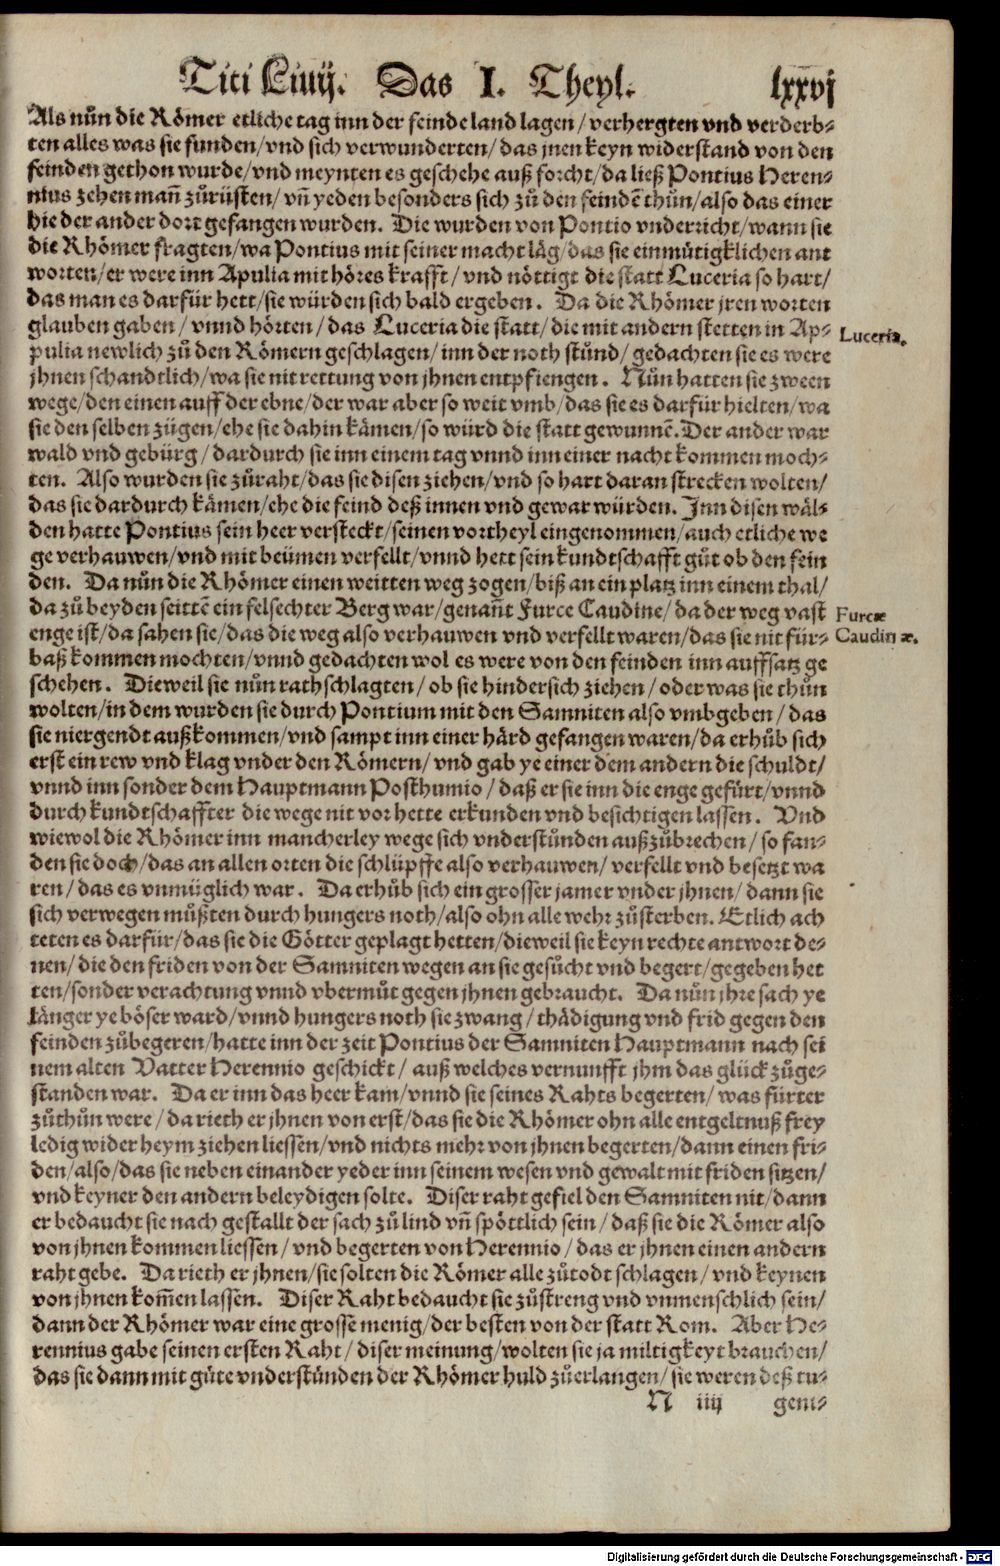 Titi Liuij. Das I. Theyl. lxxvj
Als nůn die Römer etliche tag inn der feinde land lagen / verhergten vnd verderb-
ten alles was sie funden/vnd sich verwunderten/das jnen keyn widerstand von den
feinden gethon wurde/vnd meynten es geschehe auß forcht/da ließ Pontius Heren-
nius zehen mañ zůrüsten/vñ yeden besonders sich zů den feindē thůn/also das einer
hie der ander dort gefangen wurden. Die wurden von Pontio vnderricht/wann sie
die Rhömer fragten/wa Pontius mit seiner macht läg/das sie einmütigklichen ant
worten/er were inn Apulia mit höres krafft/vnd nöttigt die statt Luceria so hart/
das man es darfür hett/sie würden sich bald ergeben. Da die Rhömer jren worten
glauben gaben/vnnd hörten/das Luceria die statt/die mit andern stetten in Ap-
Luceria.
pulia newlich zů den Römern geschlagen/inn der noth stůnd/gedachten sie es were
jhnen schandtlich/wa sie nit rettung von jhnen entpfiengen. Nůn hatten sie zween
wege/den einen auff der ebne/der war aber so weit vmb/das sie es darfür hielten/wa
sie den selben zügen/ehe sie dahin kämen/so würd die statt gewunnē. Der ander war
wald vnd gebürg/dardurch sie inn einem tag vnnd inn einer nacht kommen moch-
ten. Also wurden sie zůraht/das sie disen ziehen/vnd so hart daran strecken wolten/
das sie dardurch kämen/ehe die feind deß innen vnd gewar würden. Inn disen wäl-
den hatte Pontius sein heer versteckt/seinen vortheyl eingenommen/auch etliche we
ge verhauwen/vnd mit beümen verfellt/vnnd hett sein kundtschafft gůt ob den fein
den. Da nůn die Rhömer einen weitten weg zogen/biß an ein platz inn einem thal/
da zů beyden seittē ein felsechter Berg war/genañt Furce Caudine/da der weg vast
Furcæ
enge ist/da sahen sie/das die weg also verhauwen vnd verfellt waren/das sie nit für-
Caudinæ.
baß kommen mochten/vnnd gedachten wol es were von den feinden inn auffsatz ge
schehen. Dieweil sie nůn rathschlagten/ob sie hindersich ziehen/oder was sie thůn
wolten/in dem wurden sie durch Pontium mit den Samniten also vmbgeben/das
sie niergendt außkommen/vnd sampt inn einer härd gefangen waren/da erhůb sich
erst ein rew vnd klag vnder den Römern/vnd gab ye einer dem andern die schuldt/
vnnd inn sonder dem Hauptmann Posthumio/daß er sie inn die enge gefürt/vnnd
durch kundtschaffter die wege nit vor hette erkunden vnd besichtigen lassen. Vnd
wiewol die Rhömer inn mancherley wege sich vnderstůnden außzůbrechen/so fan-
den sie doch/das an allen orten die schlüpffe also verhauwen/verfellt vnd besetzt wa
ren/das es vnmüglich war. Da erhůb sich ein grosser jamer vnder jhnen/dann sie
sich verwegen můßten durch hungers noth/also ohn alle wehr zůsterben. Etlich ach
teten es darfür/das sie die Götter geplagt hetten/dieweil sie keyn rechte antwort de-
nen/die den friden von der Samniten wegen an sie gesůcht vnd begert/gegeben het
ten/sonder verachtung vnnd vbermůt gegen jhnen gebraucht. Da nůn jhre sach ye
länger ye böser ward/vnnd hungers noth sie zwang/thädigung vnd frid gegen den
feinden zůbegeren/hatte inn der zeit Pontius der Samniten Hauptmann nach sei
nem alten Vatter Herennio geschickt/auß welches vernunfft jhm das glück zůge-
standen war. Da er inn das heer kam/vnnd sie seines Rahts begerten/was fürter
zůthůn were/da rieth er jhnen von erst/das sie die Rhömer ohn alle entgeltnuß frey
ledig wider heym ziehen liessen/vnd nichts mehr von jhnen begerten/dann einen fri-
den/also/das sie neben einander yeder inn seinem wesen vnd gewalt mit friden sitzen/
vnd keyner den andern beleydigen solte. Diser raht gefiel den Samniten nit/dann
er bedaucht sie nach gestallt der sach zů lind vñ spöttlich sein/daß sie die Römer also
von jhnen kommen liessen/vnd begerten von Herennio/das er jhnen einen andern
raht gebe. Da rieth er jhnen/sie solten die Römer alle zůtodt schlagen/vnd keynen
von jhnen kom̄en lassen. Diser Raht bedaucht sie zůstreng vnd vnmenschlich sein/
dann der Rhömer war eine grosse menig/der besten von der statt Rom. Aber He-
rennius gabe seinen ersten Raht/diser meinung/wolten sie ja miltigkeyt brauchen/
das sie dann mit güte vnderstünden der Rhömer huld zůerlangen/sie weren deß tu-
N iiij gent-
Digitalisierung gefördert durch die Deutsche Forschungsgemeinschaft - DFG